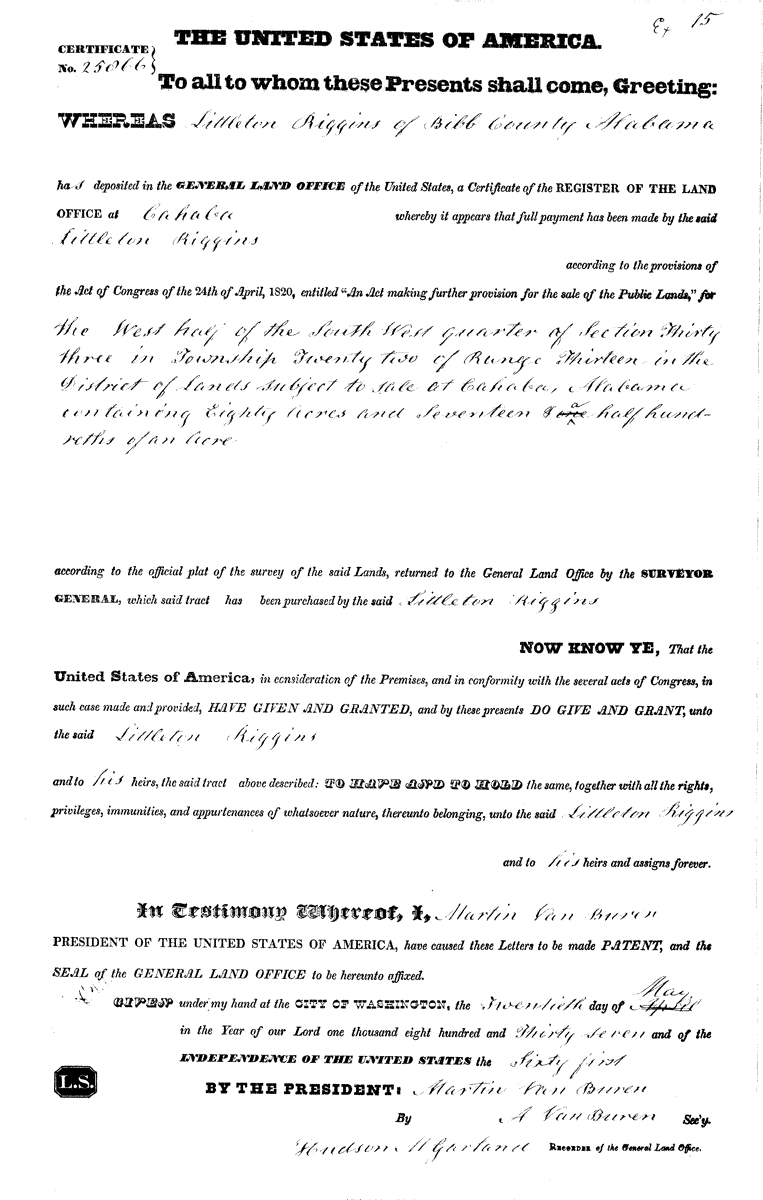 Ex 15
THE UNITED STATES OF AMERICA.
CERTIFICATE
No. 25866
To all to whom these Presents shall come, Greeting:
WHEREAS Littleton Riggins of Bibb County Alabama
has deposited in the GENERAL LAND OFFICE of the United States, a Certificate of the REGISTER OF THE LAND
OFFICE at Cahaba whereby it appears that full payment has been made by the said
Littleton Riggins
according to the provisions of
the Act of Congress of the 24th of April, 1820, entitled "An Act making further provision for the sale of the Public Lands," for
the West half of the South West quarter of Section Thirty
three in Township Twenty two of Range Thirteen in the
District of Lands subject to sale at Cahaba, Alabama
containing Eighty acres and Seventeen & a half hund-
reths of an acre
according to the official plat of the survey of the said Lands, returned to the General Land Office by the SURVEYOR
GENERAL, which said tract has been purchased by the said Littleton Riggins
NOW KNOW YE, That the
United States of America, in consideration of the Premises, and in conformity with the several acts of Congress, in
such case made and provided, HAVE GIVEN AND GRANTED, and by these presents DO GIVE AND GRANT, unto
the said Littleton Riggins
and to his heirs, the said tract above described: TO HAVE AND TO HOLD the same, together with all the rights,
privileges, immunities, and appurtenances of whatsoever nature, thereunto belonging, unto the said Littleton Riggins
and to his heirs and assigns forever.
In Testimony Whereof, I, Martin Van Buren
PRESIDENT OF THE UNITED STATES OF AMERICA, have caused these Letters to be made PATENT, and the
SEAL of the GENERAL LAND OFFICE to be hereunto affixed.
May
GIVEN under my hand at the CITY OF WASHINGTON, the Twentieth day of April
in the Year of our Lord one thousand eight hundred and Thirty seven and of the
INDEPENDENCE OF THE UNITED STATES the Sixty first
L.S.
BY THE PRESIDENT: Martin Van Buren
By A Van Buren Sec'y.
Hudson M Garland RECORDER of the General Land Office.